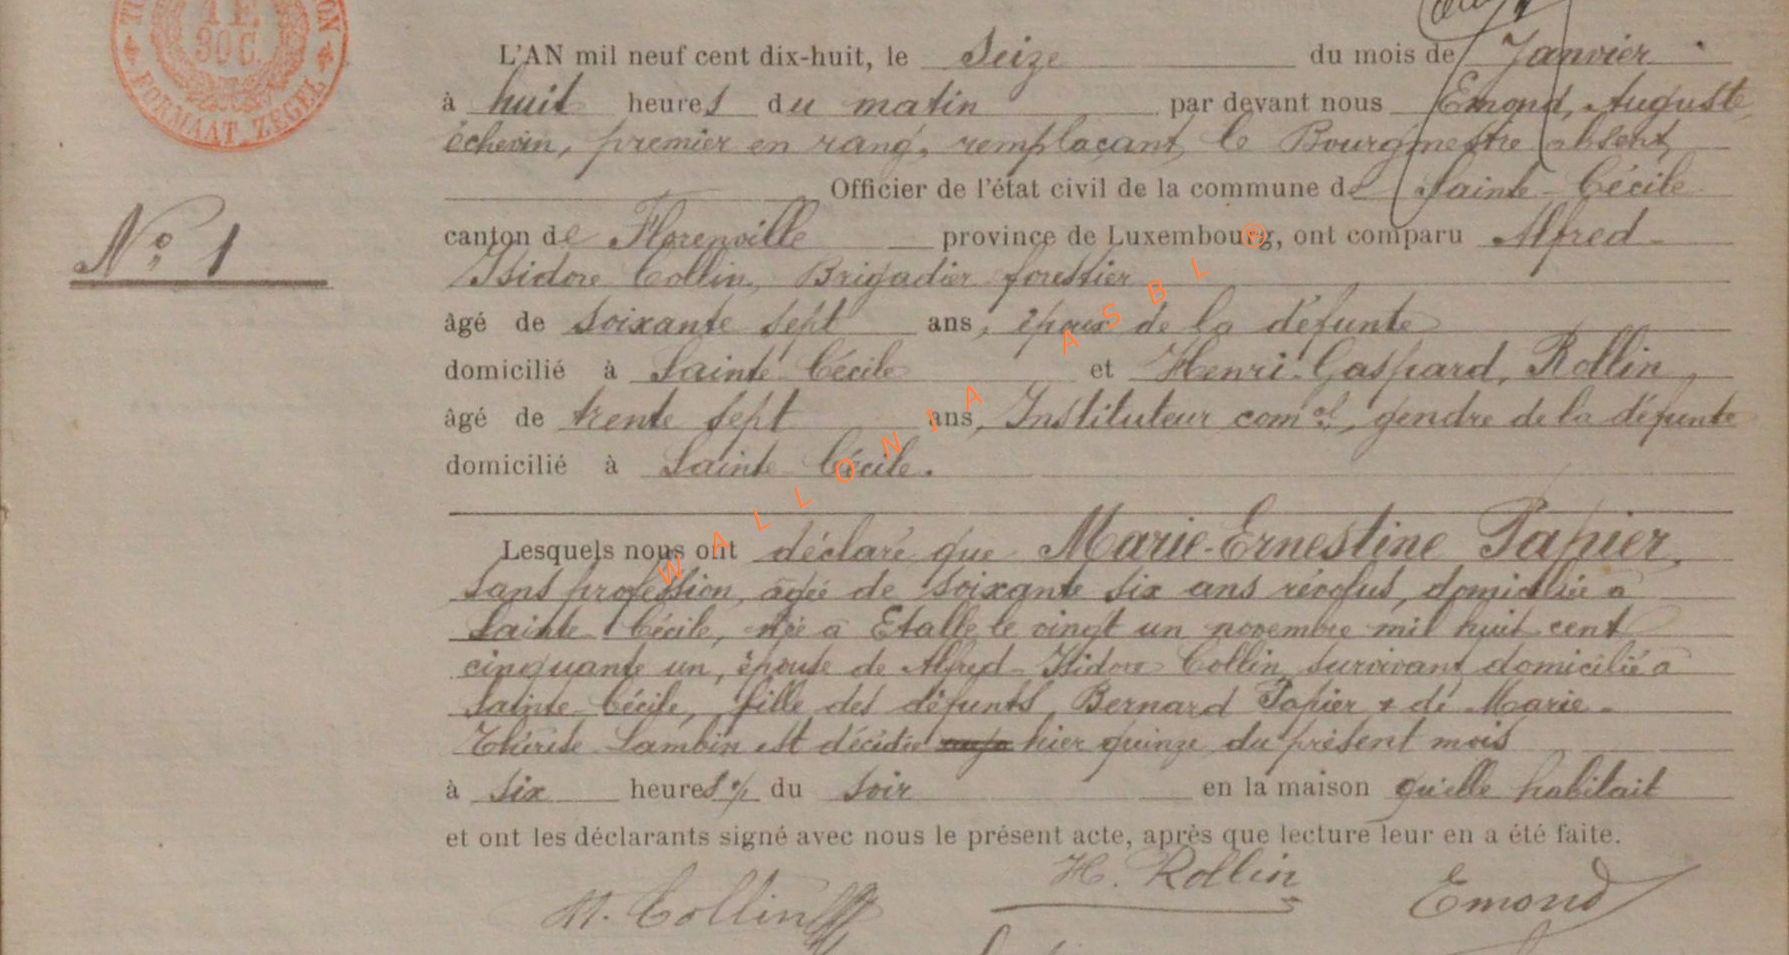 1 F.
30 C.
FORMAAT ZEGEL
L'AN mil neuf cent dix-huit, le Seize du mois de Janvier
à huit heures du matin par devant nous Emond, Auguste,
échevin, premier en rang, remplaçant le Bourgmestre absent,
Officier de l'état civil de la commune de Sainte-Cécile
N° 1
canton de Florenville province de Luxembourg, ont comparu Alfred-
Isidore Collin, Brigadier forestier
âgé de soixante sept ans, époux de la défunte
domicilié à Sainte Cécile et Henri-Gaspard, Rollin,
âgé de trente sept ans, Instituteur comal, gendre de la défunte
domicilié à Sainte Cécile.
Lesquels nous ont déclaré que Marie-Ernestine Papier,
sans profession, agée de soixante six ans révolus, domiciliée à
Sainte Cécile, née à Etalle le vingt un novembre mil huit cent
cinquante un, épouse de Alfred-Isidore Collin survivant domicilié à
Sainte-Cécile, fille des défunts Bernard Papier & de Marie-
Thérèse Lambin est décédée hier quinze du présent mois
à six heures ½ du soir en la maison qu'elle habitait
et ont les déclarants signé avec nous le présent acte, après que lecture leur en a été faite.
Collin
H. Rollin
Emond
WALLONIA ASBL ®